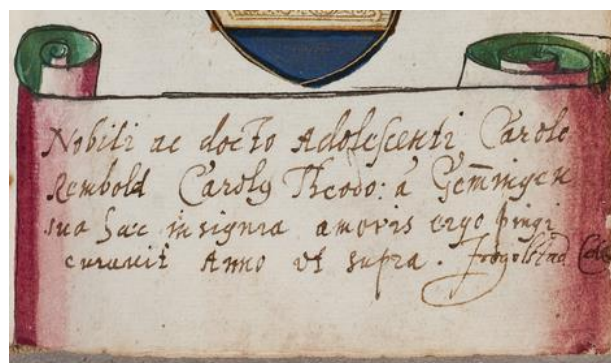 Nobili ac docto Adolescenti Carolo
Rembold Carolꝰ Theodo: à Gem̄ingen
sua hæc insignia amoris ergo pingi
curavit Anno vt supra. Ingolstad